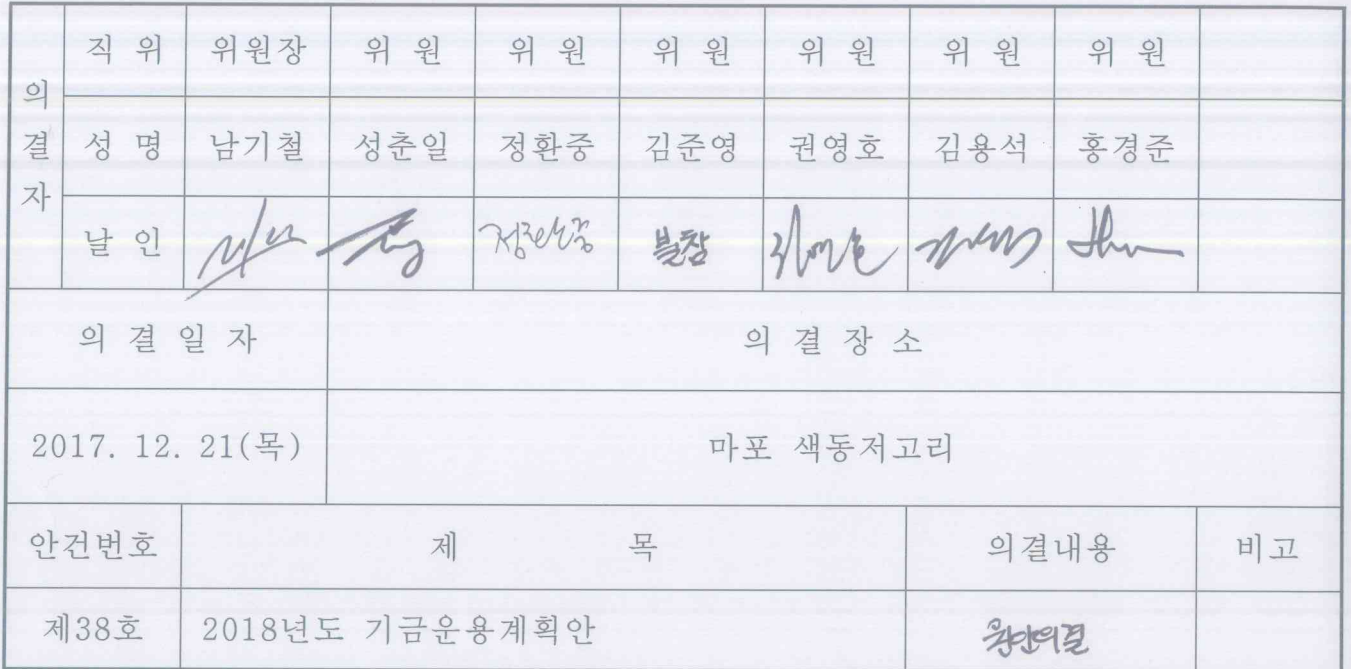 직 위 위원장 위 원 위 원 위 원 위 원 위 원 위 원
의결자
성 명 남기철 성춘일 정환중 김준영 권영호 김용석 홍경준
날 인 정환중 불참
의 결 일 자 의 결 장 소
2017. 12. 21(목) 마포 색동저고리
안건번호 제 목 의결내용 비고
제38호 2018년도 기금운용계획안 원안의결